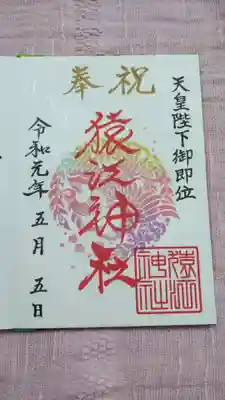 奉祝
天皇陛下御即位
猿江神社
令和元年五月五日
猿江神社